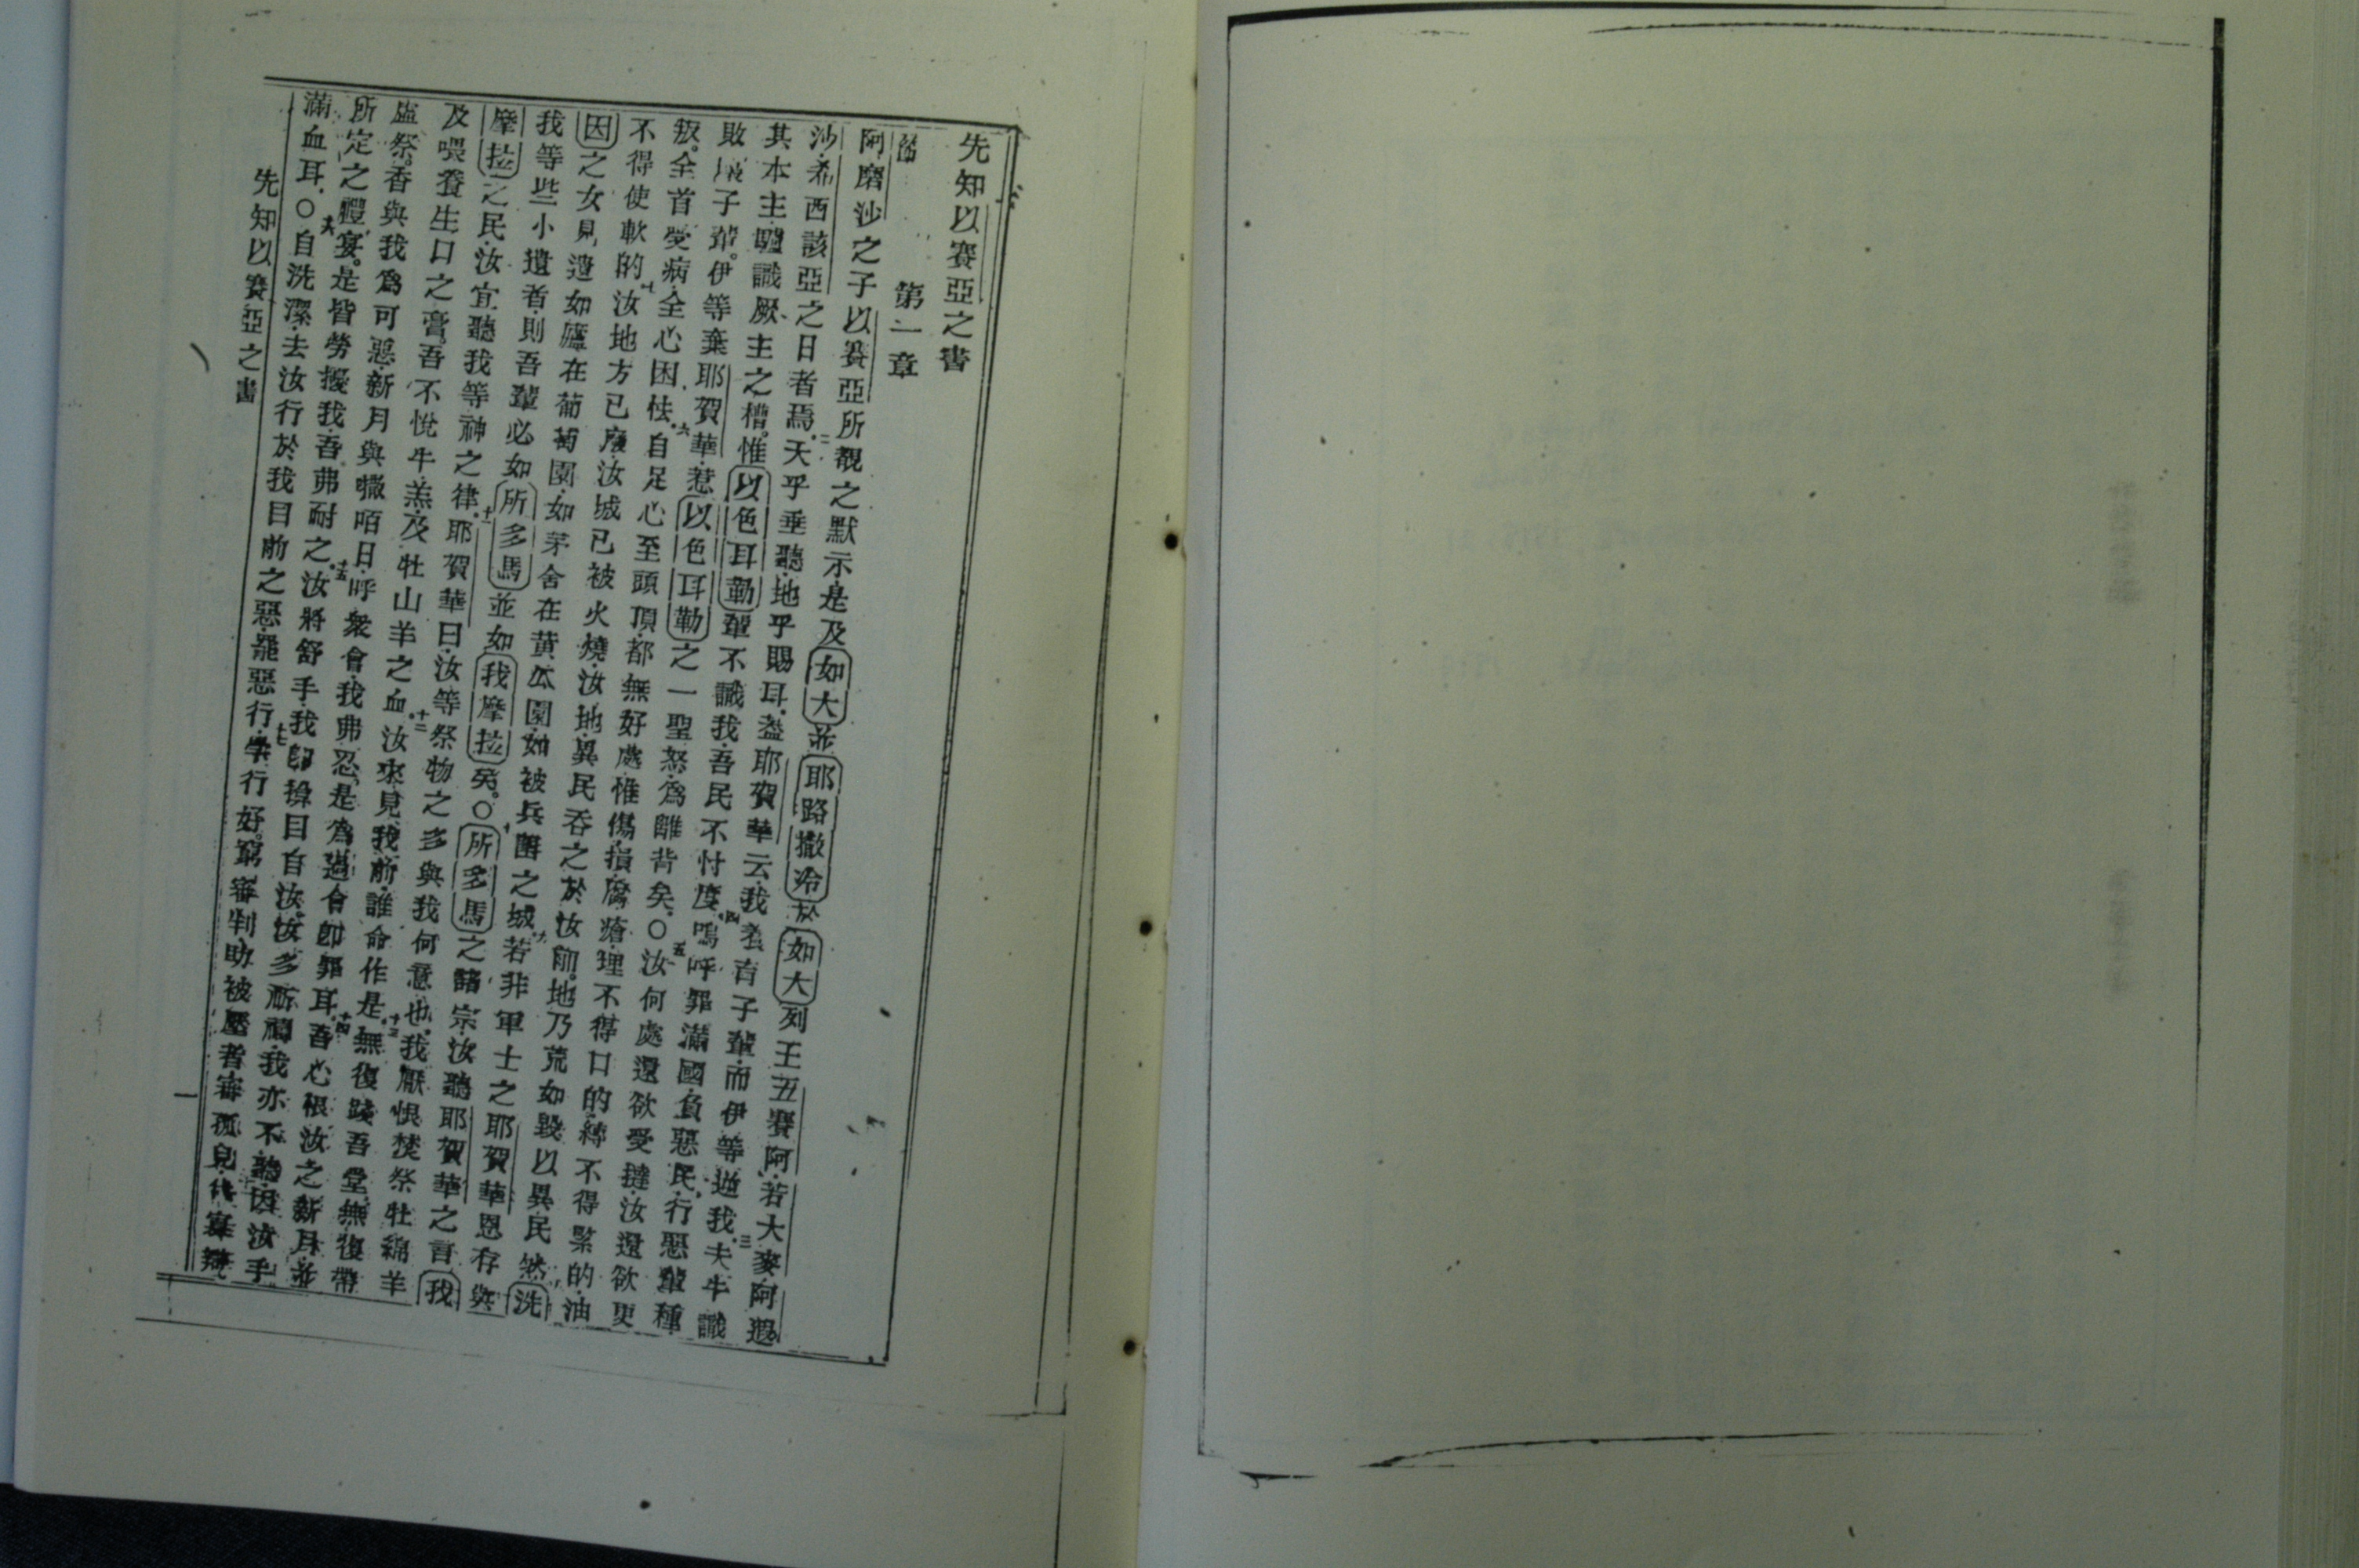 先知以賽亞之書
節　第一章
阿磨沙之子以賽亞所覩之默示是及如大並耶路撒冷於如大列王五賽阿若大麥阿遐
沙希西該亞之日者焉二天乎垂聽地乎賜耳葢耶賀華云我養育子輩而伊等逆我三夫牛識
其本主驢識厥主之槽惟以色耳勒輩不識我吾民不忖度四嗚呼罪滿國負惡民行惡輩種
敗壞子輩伊等棄耶賀華惹以色耳勒之一聖怒為離背矣○五汝何處還欲受撻汝還欲更
叛全首受病全心困怯六自足心至頭頂都無好處惟傷損腐瘡理不得口的縛不得緊的油
不得使軟的七汝地方已廢汝城已被火燒汝地異民吞之於汝前地乃荒如毀以異民然洗
因之女見遺如廬在葡萄園如茅舍在黃瓜園如被兵圍之城九若非軍士之耶賀華恩存與
我等些小遺者則吾輩必如所多馬並如我摩拉矣○十所多馬之諸宗汝聽耶賀華之言我
摩拉之民汝宜聽我等神之律十一耶賀華曰汝等祭物之多與我何意也我厭恨焚祭牡綿羊
及喂養生口之膏吾不悅牛羔及牡山羊之血十二汝來見我前誰命作是十三無復踐吾堂無復帶
虛祭香與我為可惡新月與㗶咟日呼衆會我弗忍是為過會即罪耳十四吾心恨汝之新月並
所定之禮宴是皆勞擾我吾弗耐之十五汝將舒手我即掩目自汝汝多祈禱我亦不聽因汝手
滿血耳○十六自洗潔去汝行於我目前之惡罷惡行十七學行好窮審判助被壓者審孤兒代寡辯
先知以賽亞之書
一